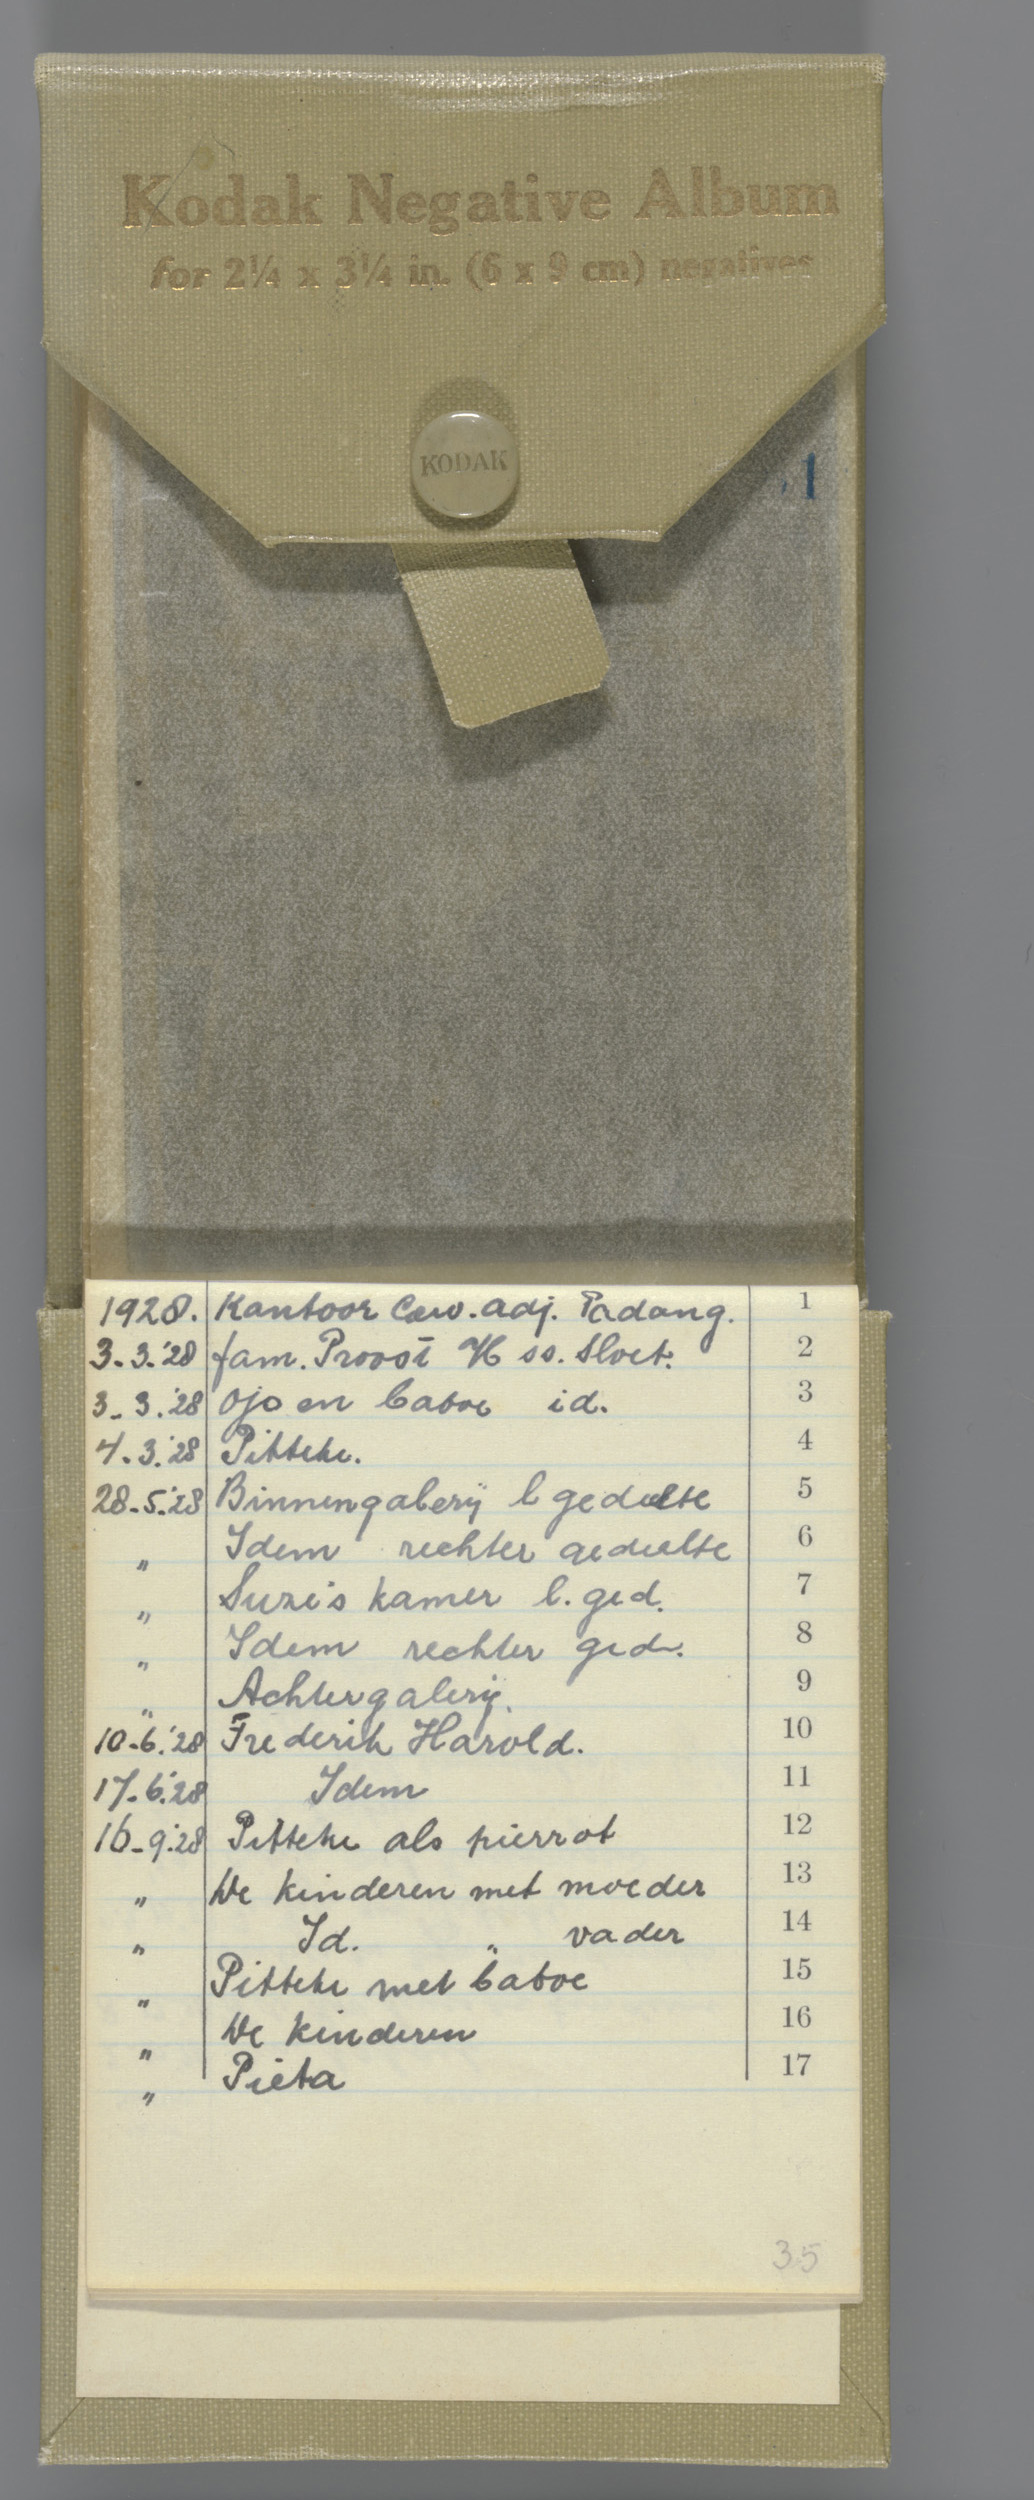 Kodak Negative Album
for 2¼ x 3¼ in. (6 x 9 cm) negatives
KODAK
1
1928. Kantoor Cew. adj. Padang. 1
3-3.'28 fam. Proost ss. Sloet. 2
3-3.'28 Ojo en baboe id. 3
4-3.'28 Pitteke. 4
28-5.'28 Binnengalerij l gedeelte 5
„ Idem rechter gedeelte 6
„ Suze's kamer l. ged. 7
„ Idem rechter ged. 8
„ Achtergalerij. 9
10-6.'28 Frederik Harold. 10
17-6.'28 Idem 11
16-9.'28 Pitteke als pierrot 12
„ De kinderen met moeder 13
„ Id. „ vader 14
„ Pitteke met baboe 15
„ De kinderen 16
„ Pieta 17
35